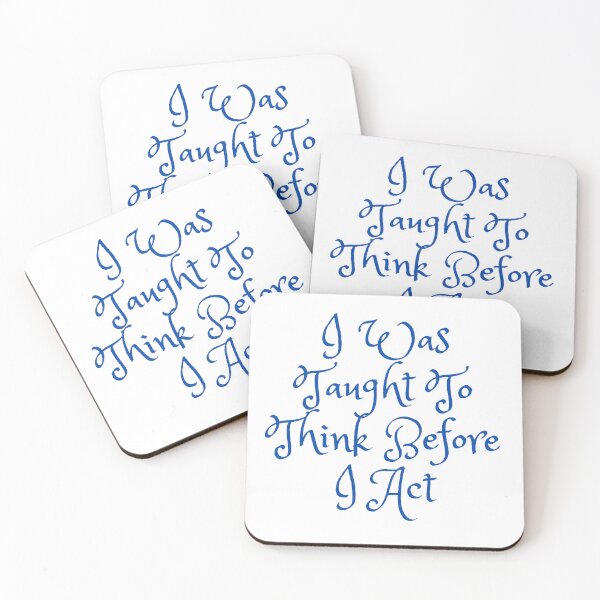 I Was
Taught To
Think Before
I Was
Taught To
Think Before
I Was
Taught To
Think Before
I Act
I Was
Taught To
Think Before
I Act